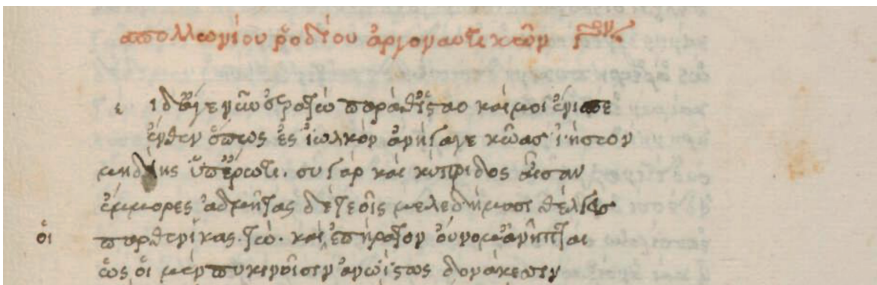 ἀπολλωνίου ῥοδίου ἀργοναυτικῶν
ε ι δ' ἄγε νῦν ἐρατὼ παράθ' ἵστασο καί μοι ἔνισπε
ἔνθεν ὅπως ἐς ἰωλκὸν ἀνήγαγε κῶας ἰήσων
μηδείης ὑπ' ἔρωτι. σὺ γὰρ καὶ κύπριδος αἶσαν
ἔμμορες ἀδμῆτας δὲ τεοῖς μελεδήμασι θέλγεις
οἱ παρθενικάς. τῶ. καὶ ἐπήρατον οὔνομ' ἀνῆπται
ὣς οἱ μὲν πυκινοῖσιν ἀνωΐστως δονάκεσσιν